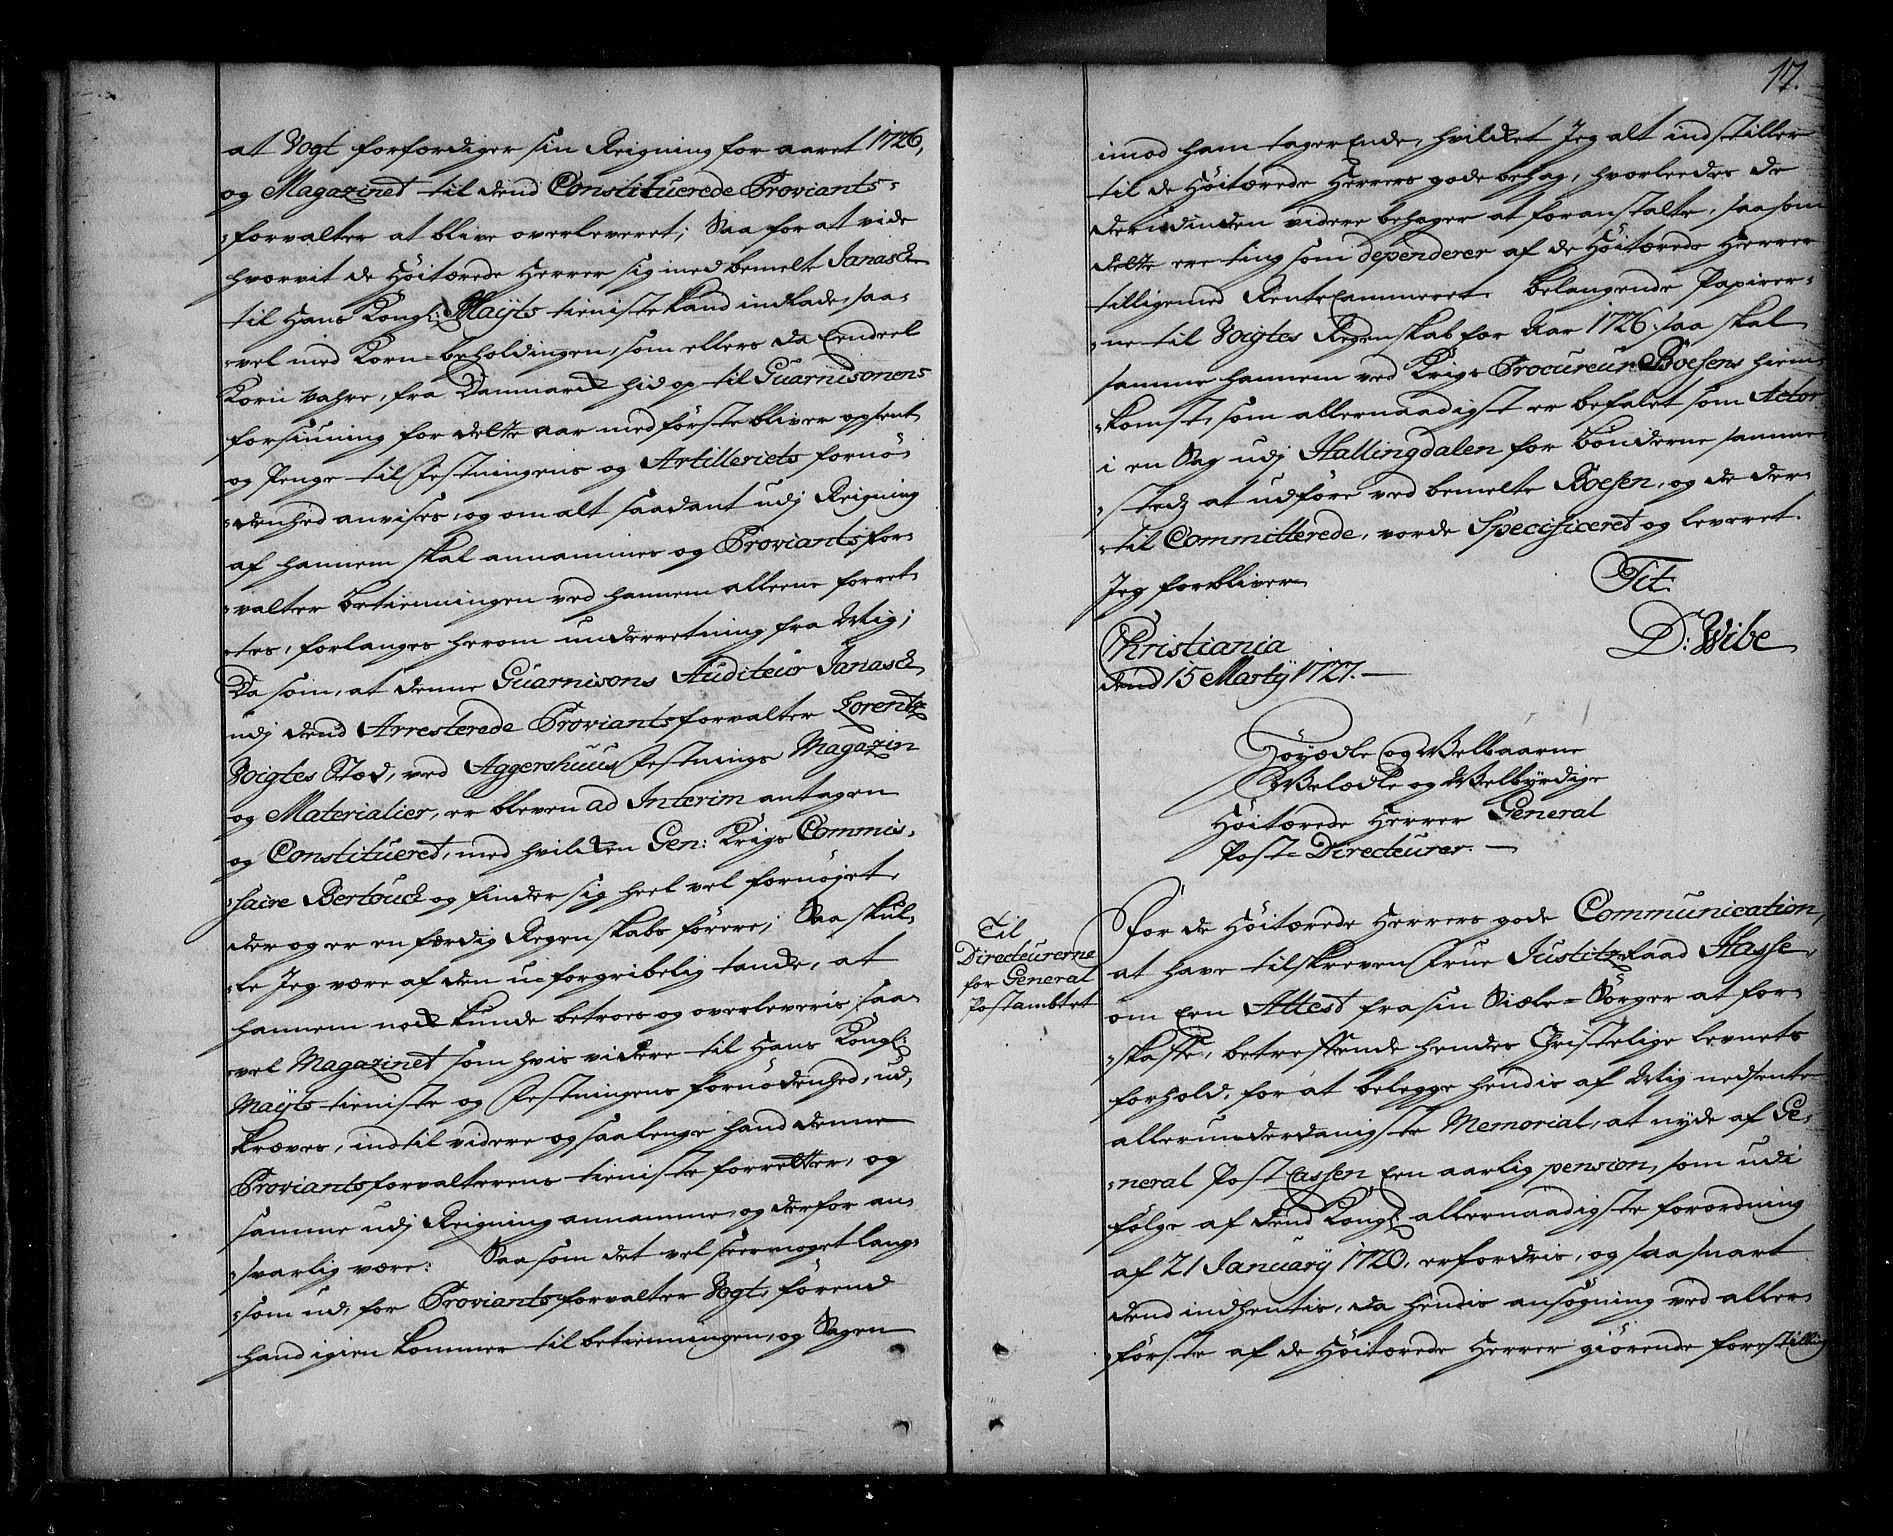 at Vogt forfærdiger sin Reigning for aaret 1726,
og Magazinet til dend Constituerede Proviants-
-forvalter at blive overleveret; Saa for at vide
hvorvit de Høitærede Herrer sig med bemelte Janasch
til Hans Kongl: Mayts tieniste kand indlade, saa-
-vel med Korn-beholdingen, som ellers da Eendeel
Korn vahre, fra Danmarck hid op til Guarnisonens
forsiuning for dette aar med første bliver opsent
og Penge til Festningens og Artilleriets fornø-
-denhed anvises, og om alt saadant udj Reigning
af hannem skal annammes og Proviantsfor-
-valter betienningen ved hannem alleene forret-
-tes, forlanges herom underretning fra Mig;
Da som, at denne Guarnisons Auditeur Janasch
udj dend Arresterede Proviantsforvalter Lorentz
Voigtes Stæd, ved Aggershuus Festnings Magazin
og Materialier, er bleven ad Interim antagen
og Constitueret, med hvilcken Gen: Krigs Commis-
-saire Bertouch og finder sig heel vel fornøjet,
der og er en færdig Regenskabs førere; Saa skul-
-le Jeg være af den uforgribelig tancke, at
hannem nock kunde betroes og overleveris saa-
-vel Magazinet som hvis videre til Hans Kongl:
Mayts tieniste og Festningens fornødenhed, ud-
kræves, indtil videre og saalenge hand denne
Proviantsforvalterens tieniste forretter, og
samme udj Reigning annamme, og derfor an-
-svarlig være: Saasom det vel seer moget lang-
-som ud, for Proviantsforvalter Vogt, førend
hand igien kommer til betienningen, og Sagen
17.
imod ham tager Ende, hvilcket Jeg alt indstiller
til de Høitærede Herrers gode behag, hvorleedes de
derudinden videre behager at foranstalte, saasom
dette ere ting som dependerer af de Høitærede Herrer
tilligemed RenteCammeret. Belangende Papirer-
-ne til Voigtes Regenskab for Aar 1726. saa skal
samme hannem ved Krigs Procureur Boesens hiem-
-komst, som allernaadigst er befalet som Actor
i en Sag udj Hallingdalen for bønderne samme-
-stedz at udføre ved bemelte Boesen, og de der-
-til Committerede, vorde Specificeret og leveret.
Jeg forbliver
Tit:
Christiania
D: Wibe
dend 15 Martij 1727.
Høyædle og Welbaarne
Welædle og Welbyrdige
Høitærede Herrer General
Post-Directeurer.
Til
Directeurerne
for General
Postambtet
For de Høitærede Herrers gode Communication
at have tilskreven Frue JustitzRaad Hasse,
om Een Attest fra sin Siæle-Sørger at for-
-skaffe, betreffende hendes Christelige levnets
forhold, for at belegge hendis af Mig nedsente
allerunderdanigste Memorial, at nyde af Ge-
-neral PostCassen Een aarlig pension, som udi
følge af dend Kongl: allernaadigste forordning
af 21 January 1720. erfordris, og saasnart
dend indhentis, da hendis ansøgning ved aller-
-første af de Høitærede Herrer giørende forestilling